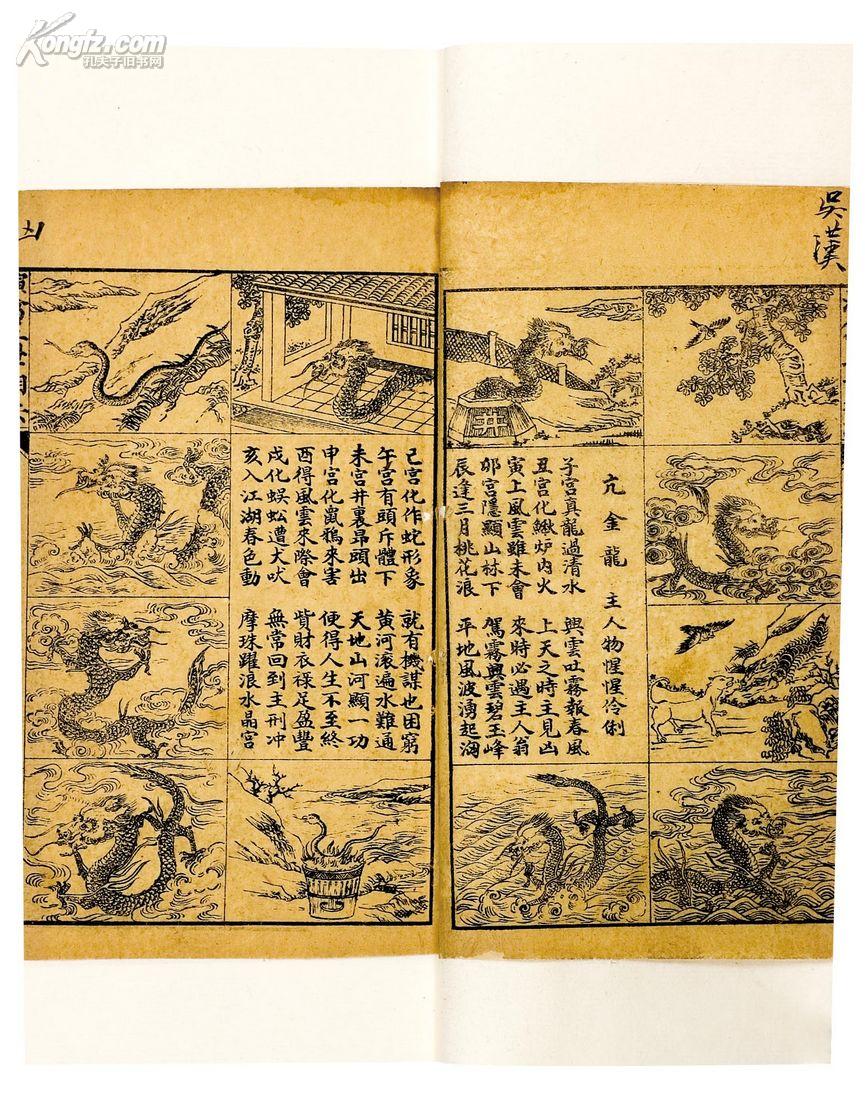 Kongfz.com
孔夫子旧书网
吳漢
亢金龍　主人物惺惺伶俐
子宮真龍過清水　興雲吐霧報春風
丑宮化鰍炉内火　上天之時主見凶
寅上風雲雖未會　來時必遇主人翁
夘宮隱顯山林下　駕霧興雲碧玉峰
辰逢三月桃花浪　平地風波湧起洶
己宮化作蛇形象　就有機謀也困窮
午宮有頭斤體下　黄河滚遍水難通
未宮井裏昂頭出　天地山河顯一功
申宮化鼠鶴來害　便得人生不至終
酉得風雲來際會　貲財衣禄足盈豐
戌化蜈蚣遭犬吠　無常回到主刑冲
亥入江湖春色動　摩珠躍浪水晶宮
井